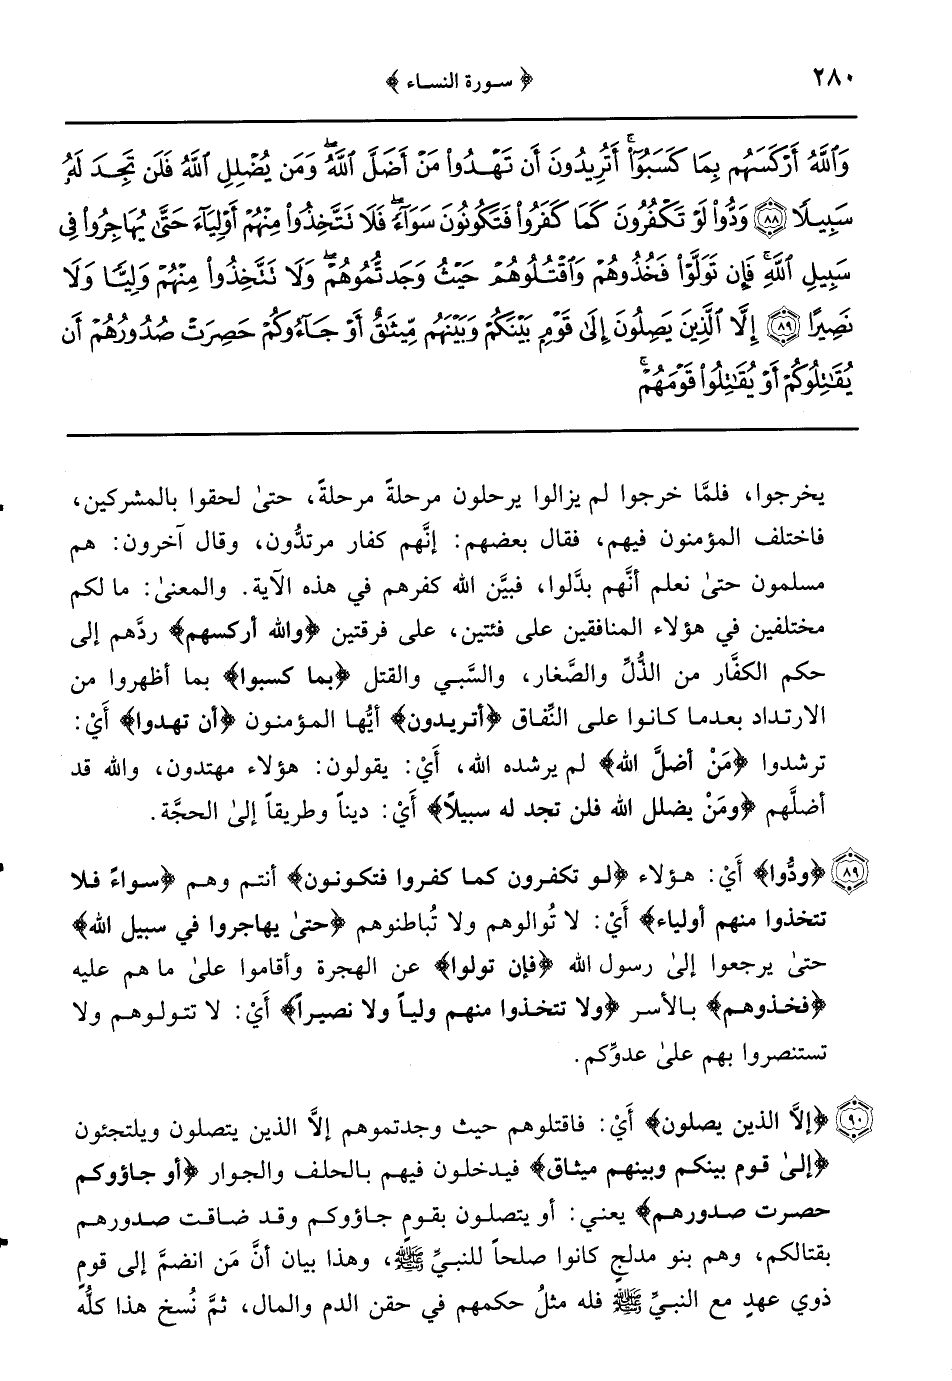 ٢٨٠
﴿ سورة النساء ﴾
وَٱللَّهُ أَرْكَسَهُم بِمَا كَسَبُوٓا۟ ۚ أَتُرِيدُونَ أَن تَهْدُوا۟ مَنْ أَضَلَّ ٱللَّهُ ۖ وَمَن يُضْلِلِ ٱللَّهُ فَلَن تَجِدَ لَهُۥ
سَبِيلًا ﴿٨٨﴾ وَدُّوا۟ لَوْ تَكْفُرُونَ كَمَا كَفَرُوا۟ فَتَكُونُونَ سَوَآءً ۖ فَلَا تَتَّخِذُوا۟ مِنْهُمْ أَوْلِيَآءَ حَتَّىٰ يُهَاجِرُوا۟ فِى
سَبِيلِ ٱللَّهِ ۚ فَإِن تَوَلَّوْا۟ فَخُذُوهُمْ وَٱقْتُلُوهُمْ حَيْثُ وَجَدتُّمُوهُمْ ۖ وَلَا تَتَّخِذُوا۟ مِنْهُمْ وَلِيًّا وَلَا
نَصِيرًا ﴿٨٩﴾ إِلَّا ٱلَّذِينَ يَصِلُونَ إِلَىٰ قَوْمٍۭ بَيْنَكُمْ وَبَيْنَهُم مِّيثَٰقٌ أَوْ جَآءُوكُمْ حَصِرَتْ صُدُورُهُمْ أَن
يُقَٰتِلُوكُمْ أَوْ يُقَٰتِلُوا۟ قَوْمَهُمْ ۚ
يخرجوا، فلمَّا خرجوا لم يزالوا يرحلون مرحلةً مرحلةً، حتىٰ لحقوا بالمشركين،
فاختلف المؤمنون فيهم، فقال بعضهم: إنَّهم كفار مرتدُّون، وقال آخرون: هم
مسلمون حتىٰ نعلم أنَّهم بدَّلوا، فبيَّن الله كفرهم في هذه الآية. والمعنىٰ: ما لكم
مختلفين في هؤلاء المنافقين على فئتين، على فرقتين ﴿والله أركسهم﴾ ردَّهم إلى
حكم الكفَّار من الذُّلِّ والصَّغار، والسَّبي والقتل ﴿بما كسبوا﴾ بما أظهروا من
الارتداد بعدما كانوا على النِّفاق ﴿أتريدون﴾ أيُّها المؤمنون ﴿أن تهدوا﴾ أَيْ:
ترشدوا ﴿مَنْ أضلَّ الله﴾ لم يرشده الله، أَيْ: يقولون: هؤلاء مهتدون، والله قد
أضلَّهم ﴿ومَنْ يضلل الله فلن تجد له سبيلاً﴾ أَيْ: ديناً وطريقاً إلىٰ الحجَّة.
﴿٨٩﴾ ﴿ودُّوا﴾ أَيْ: هؤلاء ﴿لو تكفرون كما كفروا فتكونون﴾ أنتم وهم ﴿سواءً فلا
تتخذوا منهم أولياء﴾ أَيْ: لا تُوالوهم ولا تُباطنوهم ﴿حتىٰ يهاجروا في سبيل الله﴾
حتىٰ يرجعوا إلىٰ رسول الله ﴿فإن تولوا﴾ عن الهجرة وأقاموا علىٰ ما هم عليه
﴿فخذوهم﴾ بالأسر ﴿ولا تتخذوا منهم ولياً ولا نصيراً﴾ أَيْ: لا تتولوهم ولا
تستنصروا بهم علىٰ عدوِّكم.
﴿٩٠﴾ ﴿إلاَّ الذين يصلون﴾ أَيْ: فاقتلوهم حيث وجدتموهم إلاَّ الذين يتصلون ويلتجئون
﴿إلىٰ قوم بينكم وبينهم ميثاق﴾ فيدخلون فيهم بالحلف والجوار ﴿أو جاؤوكم
حصرت صدورهم﴾ يعني: أو يتصلون بقومٍ جاؤوكم وقد ضاقت صدورهم
بقتالكم، وهم بنو مدلجٍ كانوا صلحاً للنبيِّ ﷺ، وهذا بيان أنَّ مَن انضمَّ إلى قومٍ
ذوي عهدٍ مع النبيِّ ﷺ فله مثلُ حكمهم في حقن الدم والمال، ثمَّ نُسخ هذا كلُّه